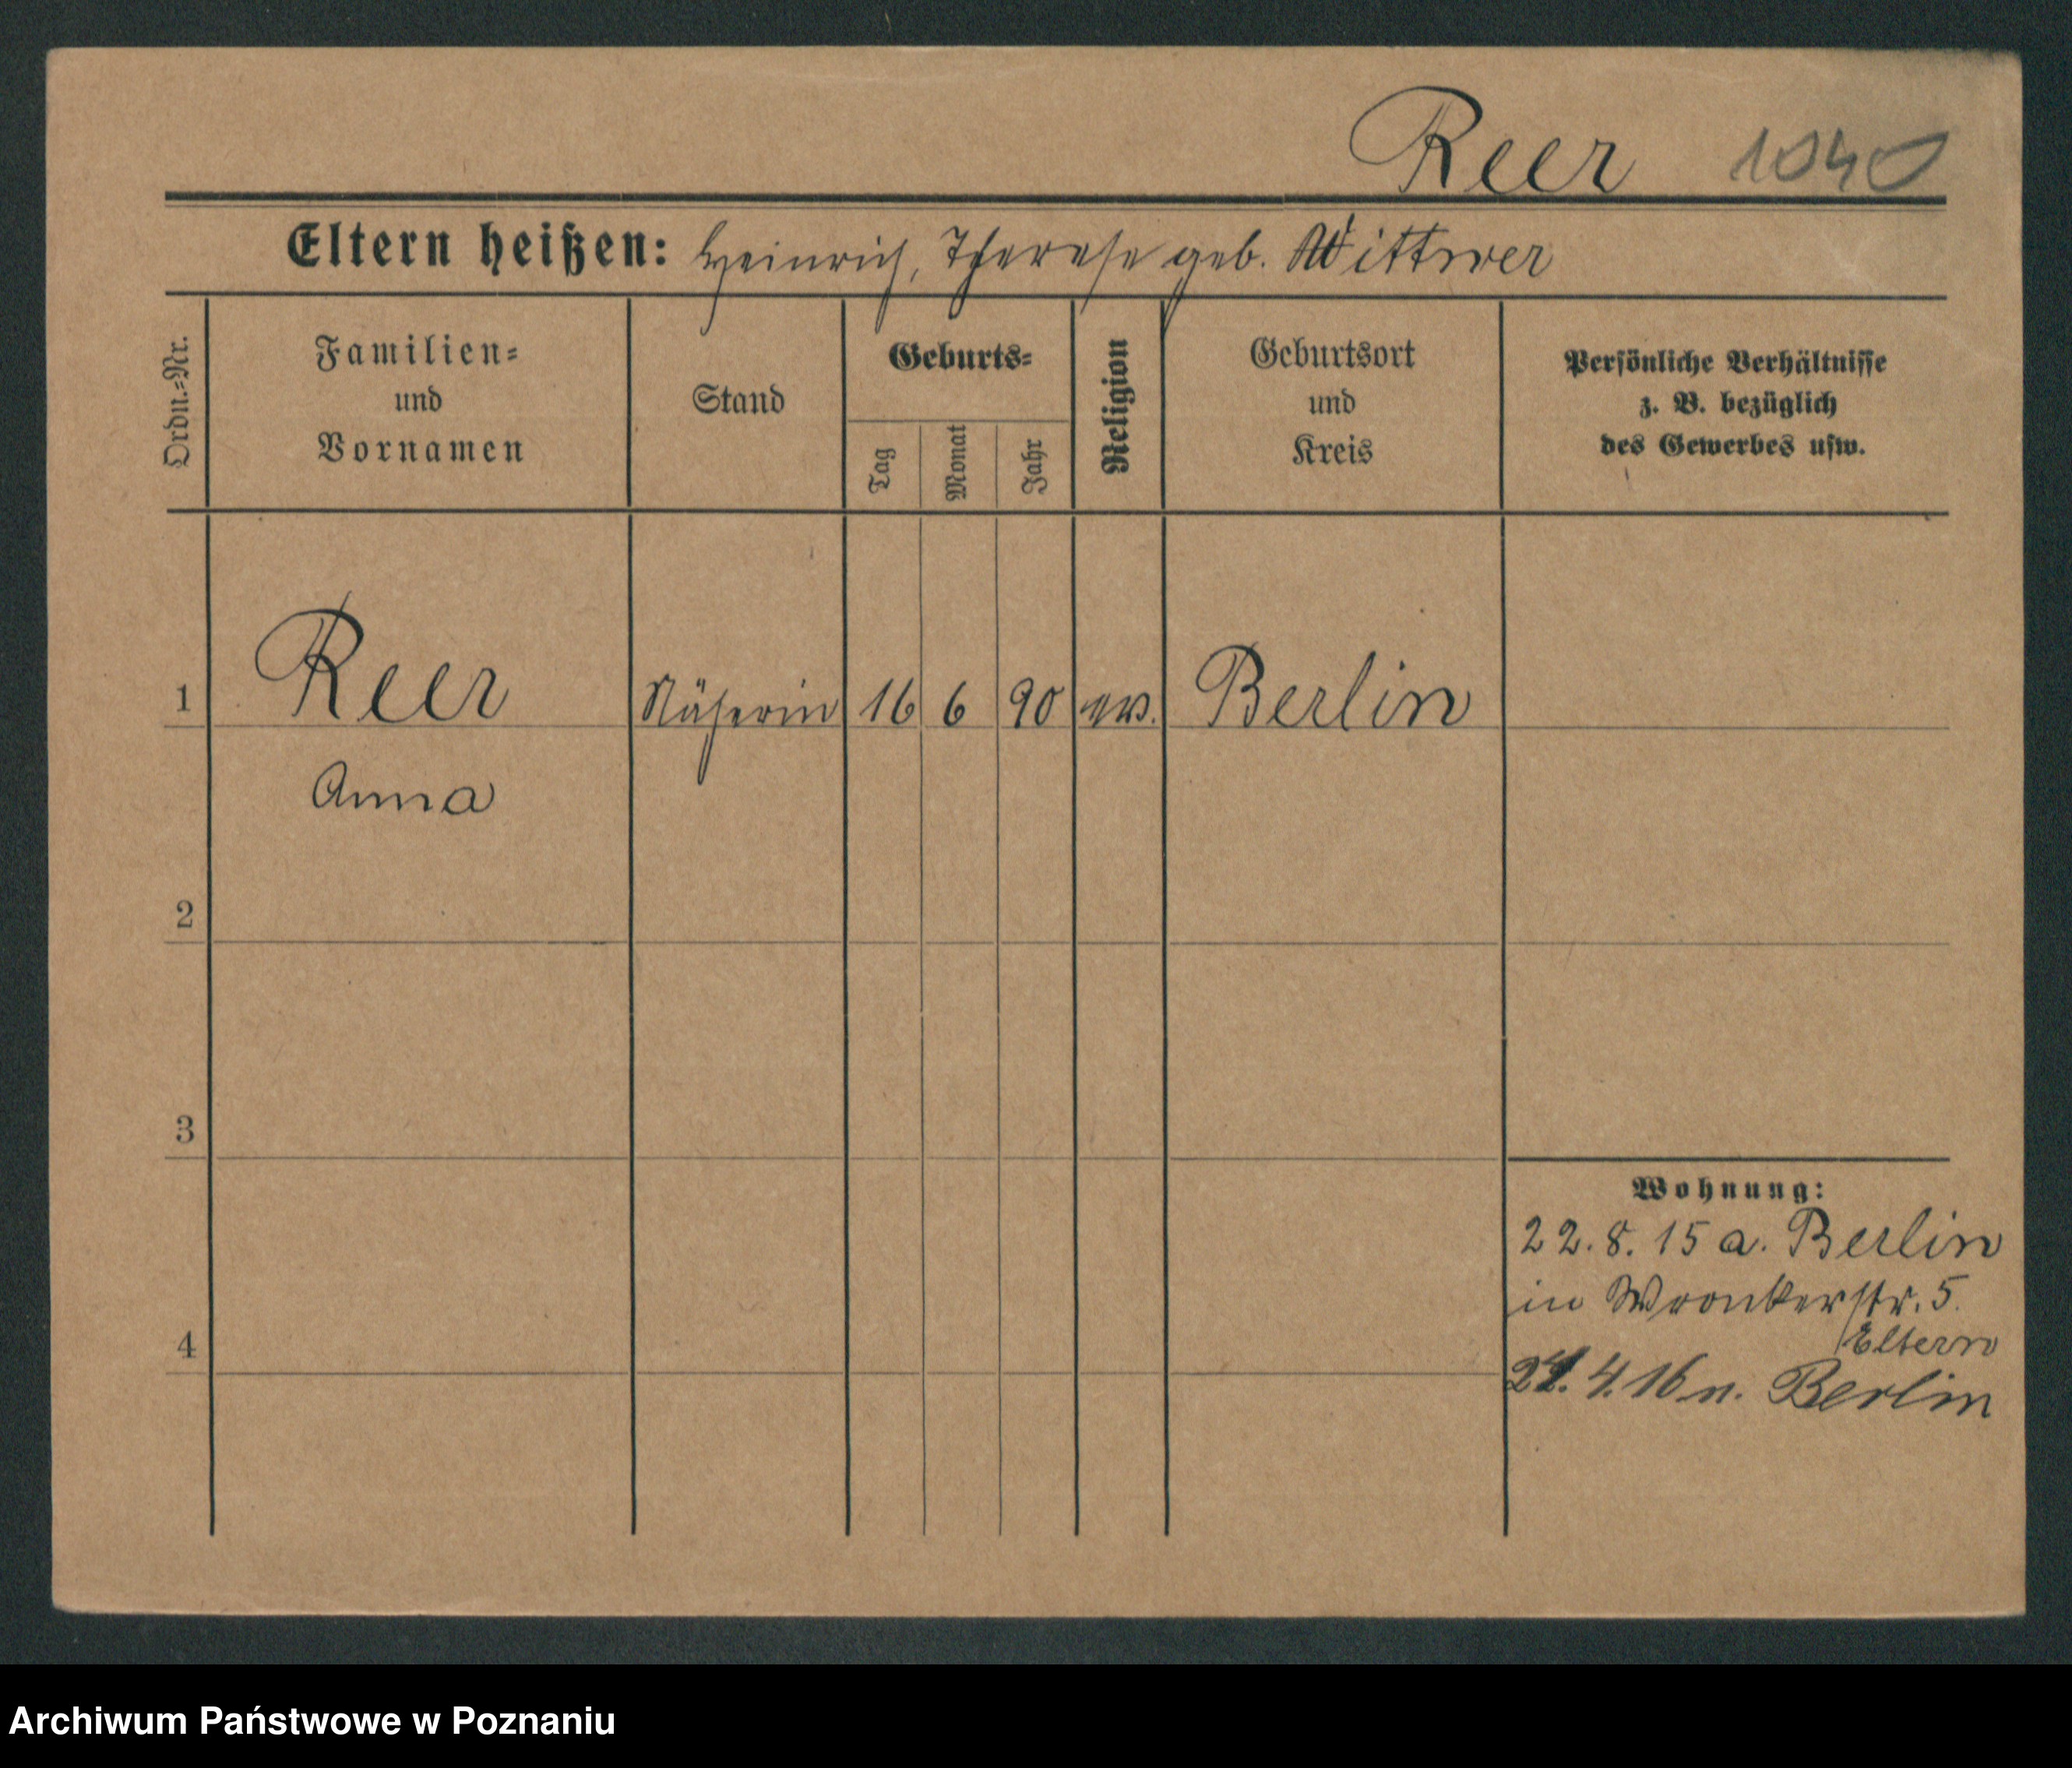 Reer 1040
Eltern heißen: Heinrich, Therese geb. Wittwer
Ordn.=Nr.
Familien=
und
Vornamen
Stand
Geburts=
Tag
Monat
Jahr
Religion
Geburtsort
und
Kreis
Persönliche Verhältnisse
z. B. bezüglich
des Gewerbes usw.
1 Reer Näherin 16 6 90 ev. Berlin
Anna
2
3
Wohnung:
22.8.15 a. Berlin
in Wronkerstr. 5.
Eltern
4
4.16 n. Berlin
Archiwum Państwowe w Poznaniu